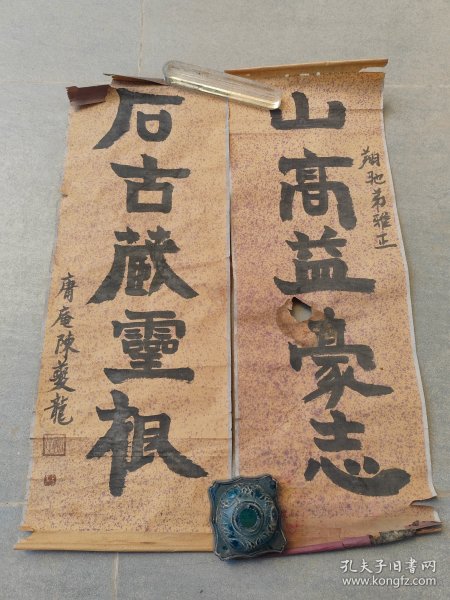 山高益豪志
翔池弟雅正
石古藏靈根
庸庵陳夔龍
孔夫子旧书网
www.kongfz.com